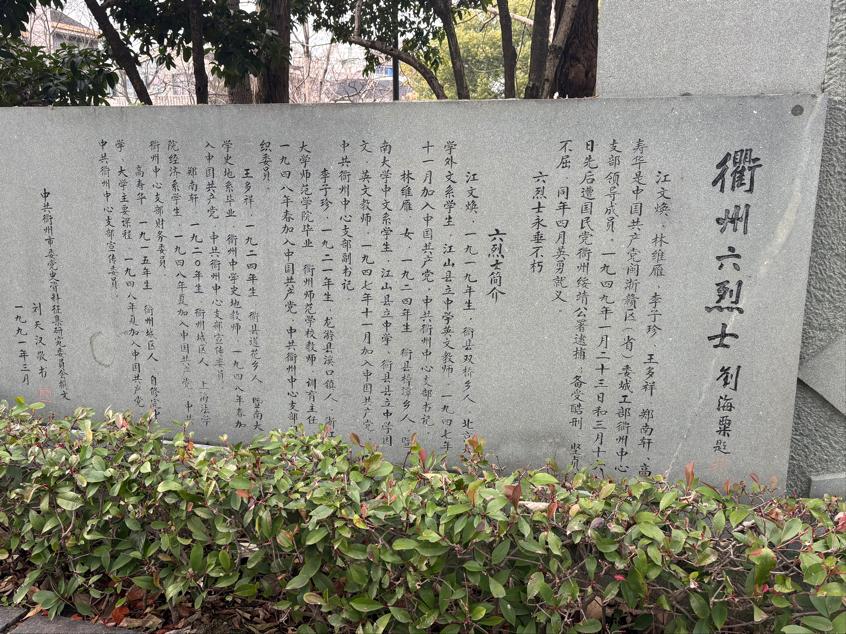 衢州六烈士 刘海粟题
江文焕、林维雁、李子珍、王多祥、郑南轩、高
寿华是中国共产党闽浙赣区（省）委城工部衢州中心
支部领导成员，一九四九年一月二十三日和三月十
日先后遭国民党衢州绥靖公署逮捕，备受酷刑，坚贞
不屈，同年四月英勇就义。
六烈士永垂不朽
六烈士简介
江文焕，一九一九年生，衢县双桥乡人，北
学外文系学生，江山县立中学英文教师，一九四七年
十一月加入中国共产党，中共衢州中心支部书记。
林维雁，女，一九二四年生，衢县樟潭乡人，暨
南大学中文系学生，江山县立中学、衢县县立中学国
文、英文教师，一九四七年十一月加入中国共产党，
中共衢州中心支部副书记。
李子珍，一九二一年生，龙游县溪口镇人，浙
大学师范学院毕业，衢州师范学校教师，训育主任，
一九四八年春加入中国共产党，中共衢州中心支部
织委员。
王多祥，一九二四年生，衢县莲花乡人，暨南大
学史地系毕业，衢州中学史地教师，一九四八年春加
入中国共产党，中共衢州中心支部宣传委员。
郑南轩，一九二〇年生，衢州城区人，上海法学
院经济系学生，一九四八年夏加入中国共产党，中共
衢州中心支部财务委员。
高寿华，一九一五年生，衢州城区人，自修完中
学、大学主要课程，一九四八年夏加入中国共产党，
中共衢州中心支部宣传委员。
中共衢州市委党史资料征集研究委员会撰文
刘天汉敬书
一九九一年三月